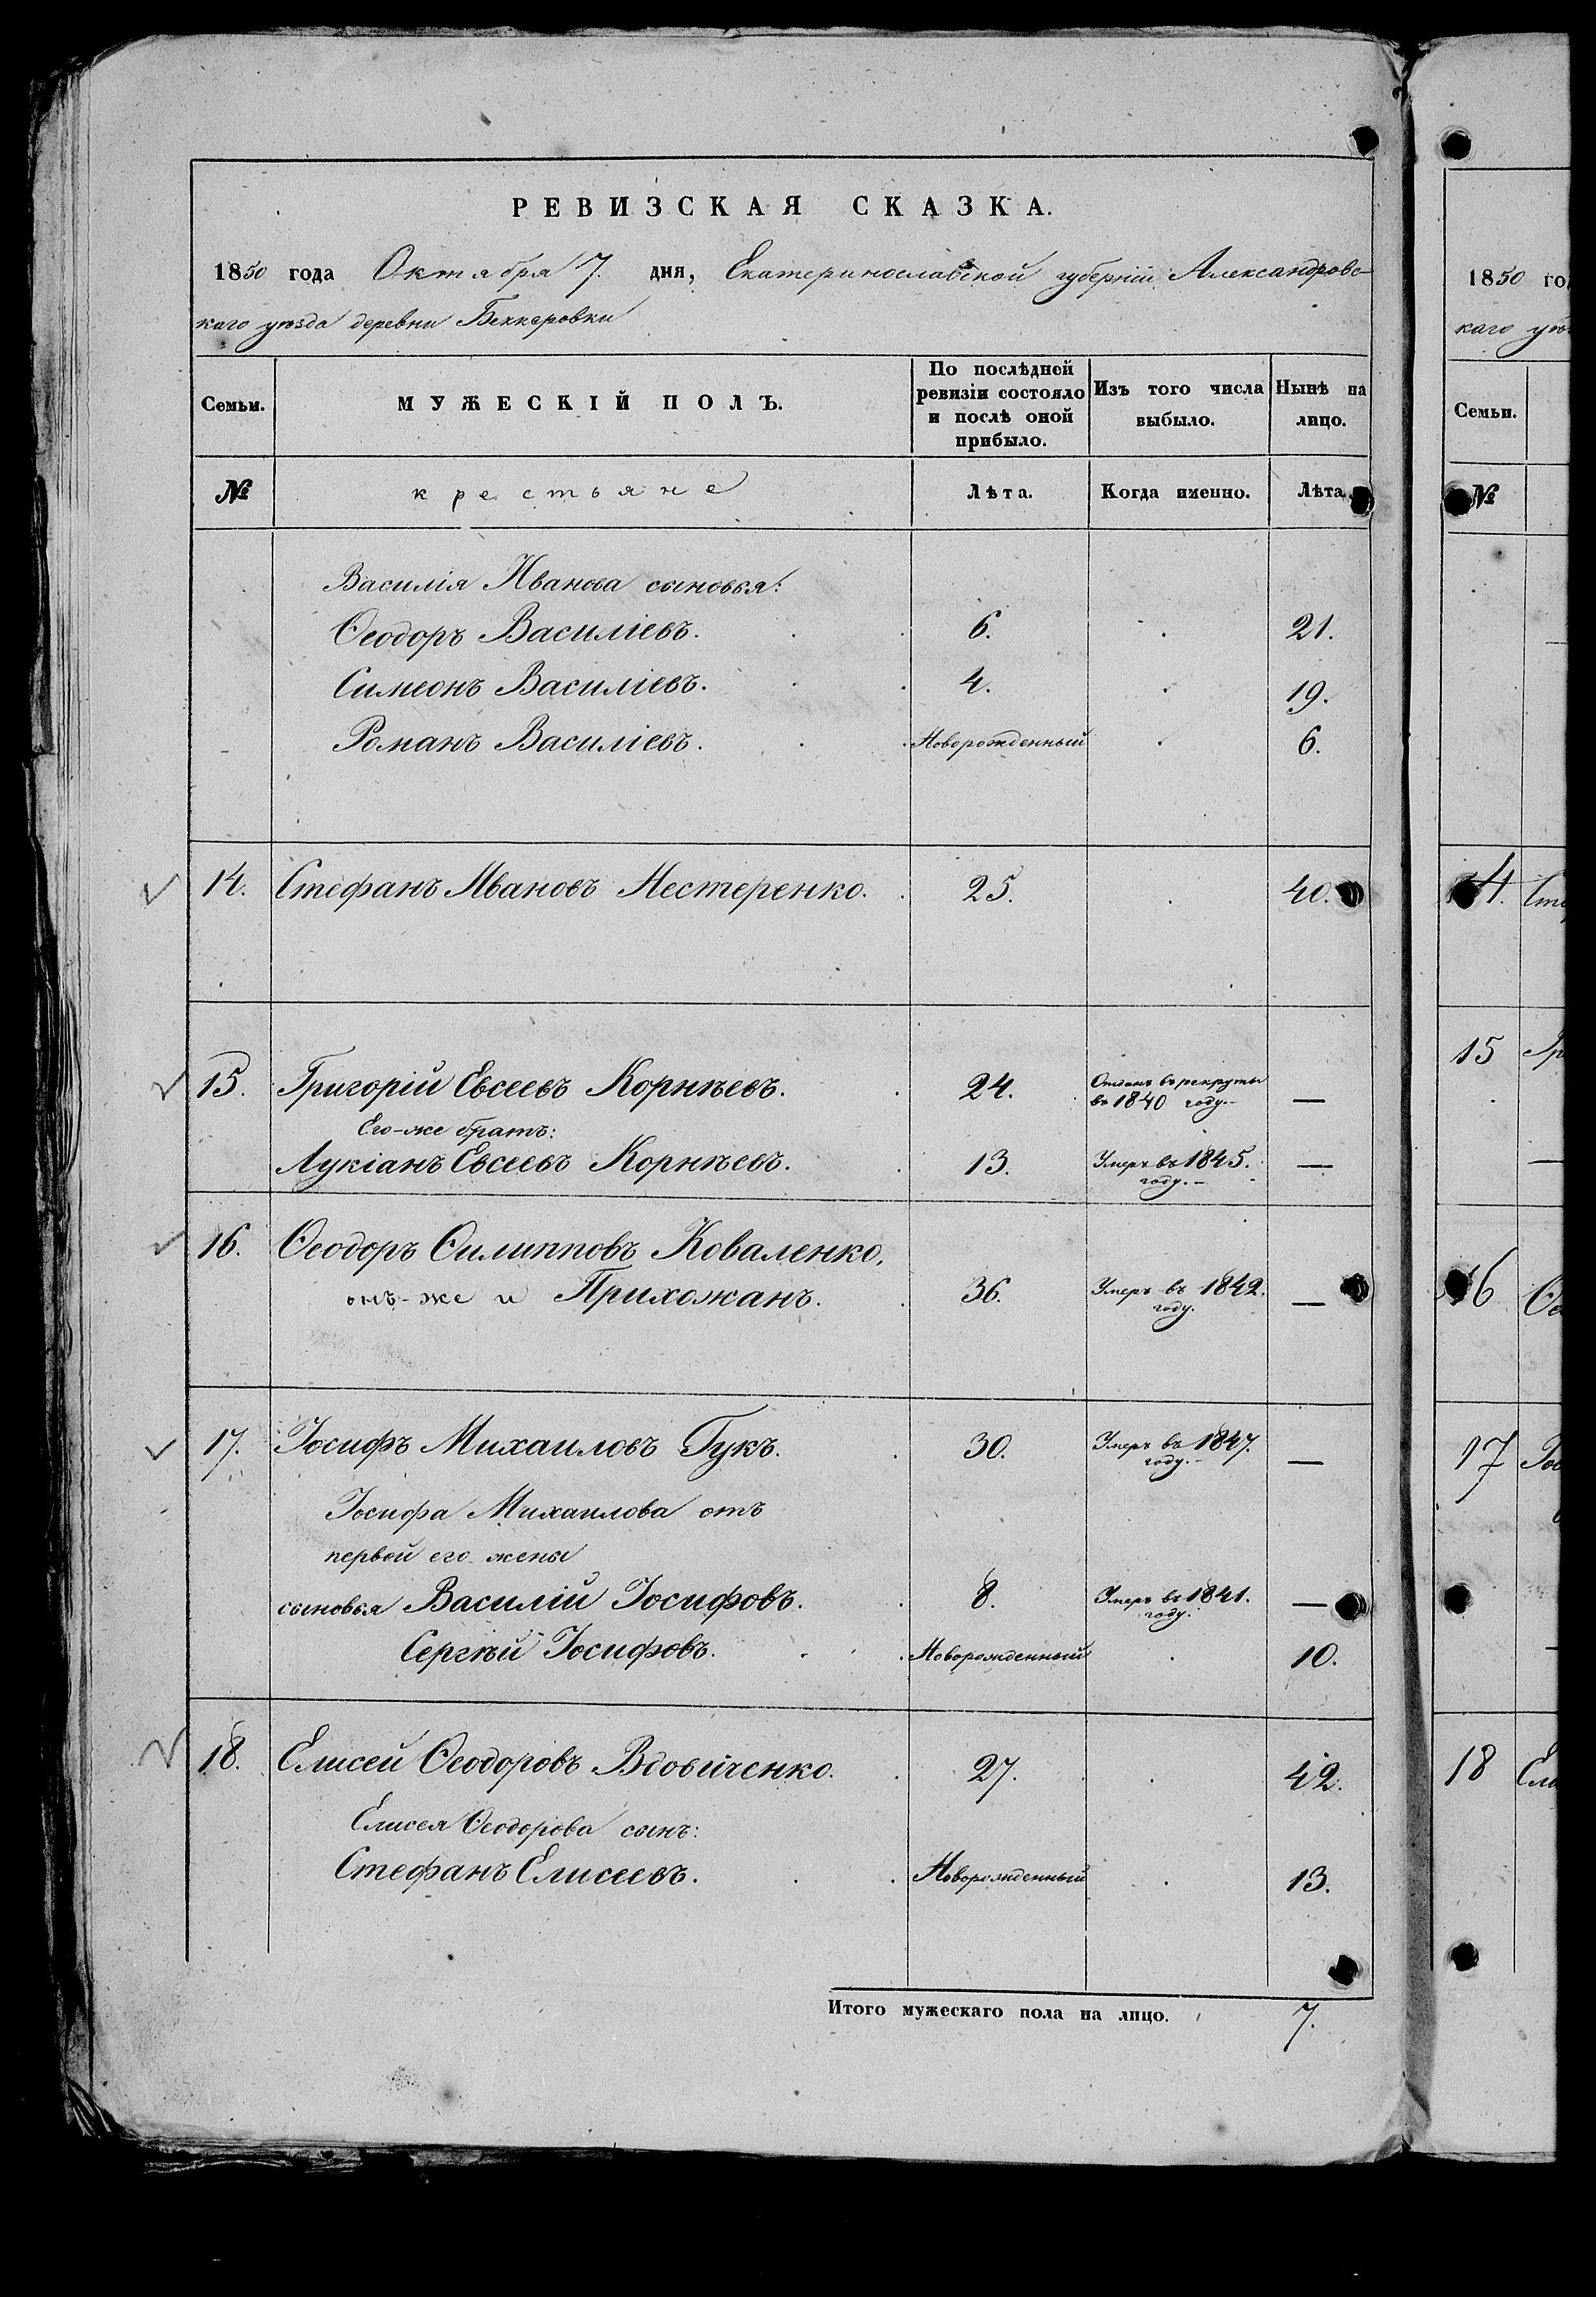 РЕВИЗСКАЯ СКАЗКА.
1850 года Октября 7. дня, Екатеринославской губернiи Александровс-
каго уѣзда деревни Беккеровки
Семьи.
МУЖЕСКІЙ ПОЛЪ.
По послѣдней
ревизіи состояло
и послѣ оной
прибыло.
Изъ того числа
выбыло.
Нынѣ на
лицо.
№ крестьяне Лѣта. Когда именно. Лѣта.
Василія Иванова сыновья:
Ѳеодоръ Василіевъ. 6. 21.
Симеонъ Василіевъ. 4. 19.
Романъ Василіевъ. Новорожденный 6.
14. Стефанъ Ивановъ Нестеренко. 25. 40.
15. Григорій Евсеевъ Корнѣевъ. 24. Отданъ въ рекруты
въ 1840 году.- —
Его-же братъ:
Лукіанъ Евсеевъ Корнѣевъ. 13. Умеръ въ 1845.
году.- —
16. Ѳеодоръ Филипповъ Коваленко,
онъ-же и Прихожанъ. 36. Умеръ въ 1842.
году. —
17. Іосифъ Михаиловъ Гукъ. 30. Умеръ въ 1847.
году.- —
Іосифа Михаилова отъ
первой его жены
сыновья Василій Іосифовъ. 8. Умеръ въ 1841.
году. —
Сергѣй Іосифовъ. Новорожденный 10.
18. Елисей Ѳеодоровъ Вдовиченко. 27. 42.
Елисея Ѳеодорова сынъ:
Стефанъ Елисеевъ. Новорожденный 13.
Итого мужескаго пола на лицо. 7.
1850 го
каго уѣ
Семьи.
№
15
17
18